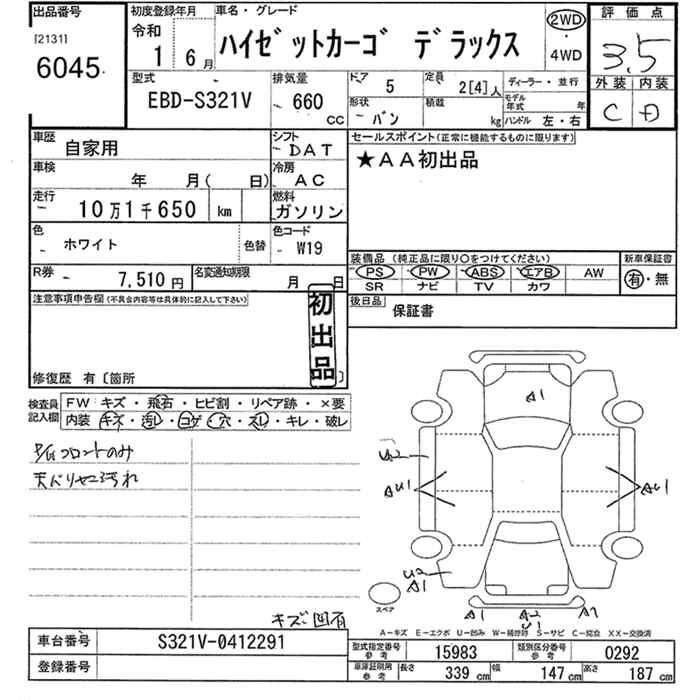 出品番号
[2131]
6045
初度登録年月
令和
1 6月
車名・グレード
ハイゼットカーゴ デラックス
2WD
・
4WD
評価点
3.5
外装 内装
C D
型式
EBD-S321V
排気量
660
CC
ドア 5
定員 2[4]人
ディーラー・並行
形状
バン
積載
kg
モデル年式 年
ハンドル 左・右
車歴
自家用
シフト
DAT
セールスポイント(正常に機能するものに限ります)
★AA初出品
車検
年 月( 日)
冷房
AC
走行
10万1千650 km
燃料
ガソリン
色
ホワイト
色替
色コード
W19
装備品 (純正品に限り○をつけてください)
新車保証書
PS PW ABS エアB AW
SR ナビ TV カワ
有・無
R券
7,510円
名変通知期限
月 日
後日品
保証書
注意事項申告欄(不具合内容等は具体的に記入して下さい)
初出品
修復歴 有〔箇所
検査員記入欄
FW キズ・飛石・ヒビ割・リペア跡・×要
内装 キズ・汚レ・コゲ・穴・スレ・キレ・破レ
P/Gフロントのみ
天バリヤニ汚れ
キズ凹有
A1
U2
AU1
AU1
U2
A1
スペア
A1
A2
U1
A1
A-キズ E-エクボ U-凹み W-補修跡 S-サビ C-腐食 XX-交換済
車台番号
S321V-0412291
登録番号
型式指定番号参考
15983
類別区分番号参考
0292
車庫証明用参考
長さ 339 cm
幅 147 cm
高さ 187 cm